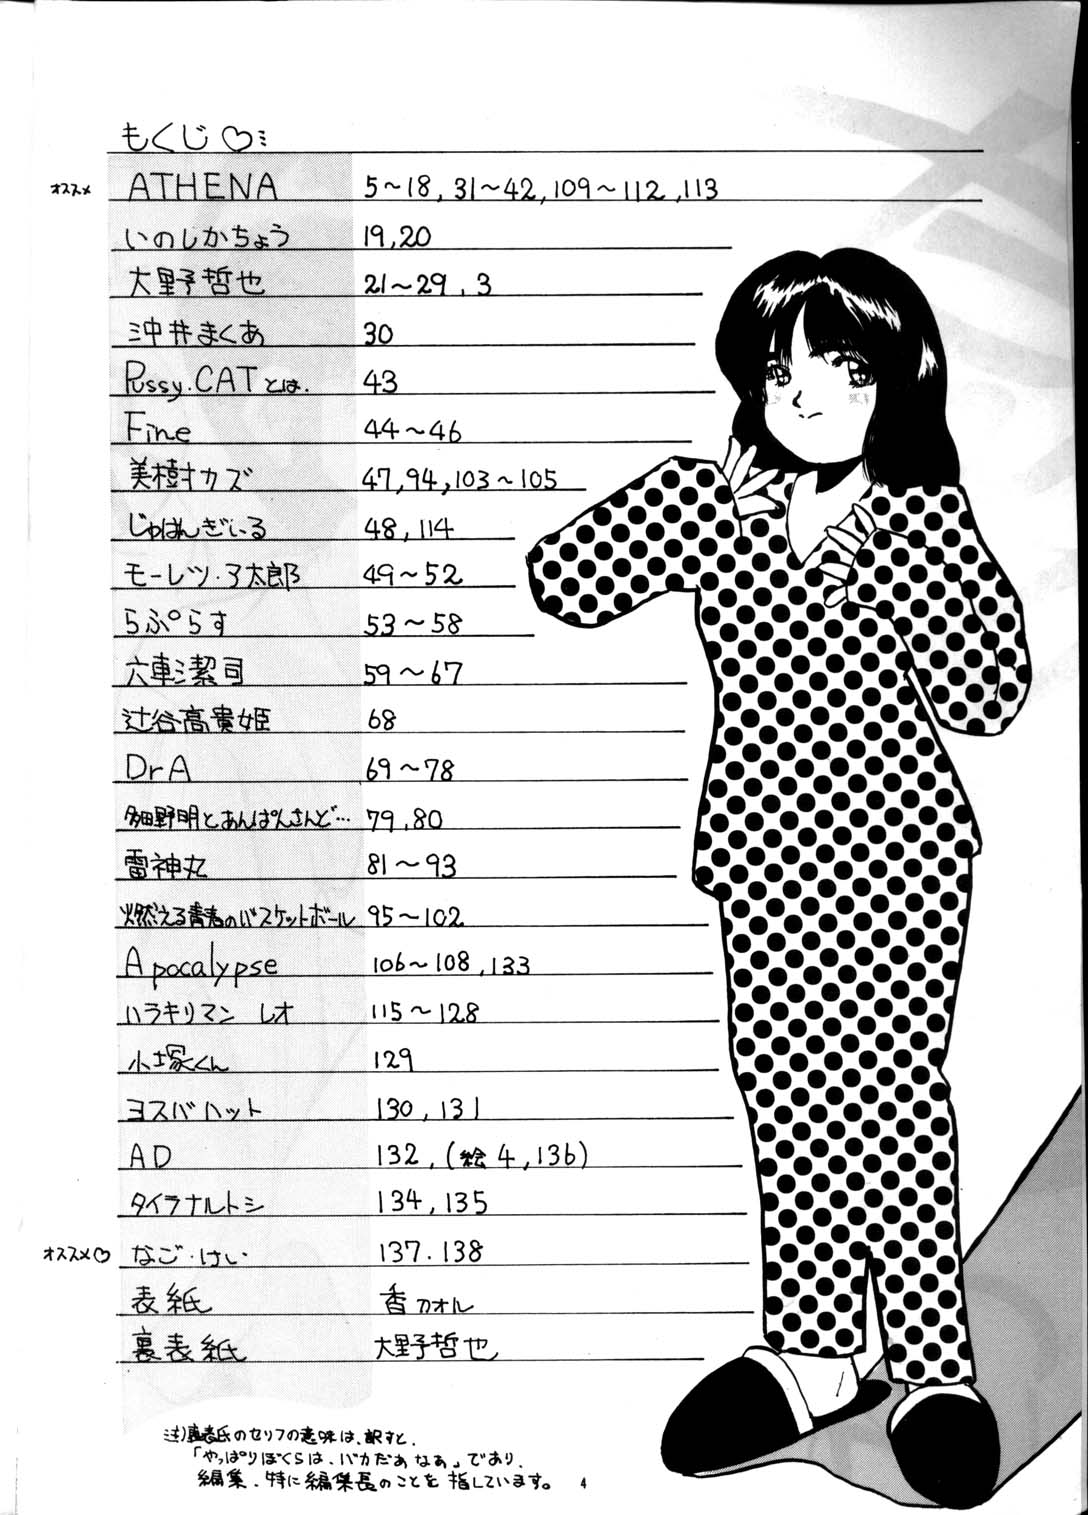 もくじ♡ミ
オススメ ATHENA 5〜18, 31〜42, 109〜112, 113
いのしかちょう 19, 20
大野哲也 21〜29, 3
沖井まくあ 30
Pussy.CATとは. 43
Fine 44〜46
美樹カズ 47, 94, 103〜105
じゅはんぎいる 48, 114
モーレツ・ア太郎 49〜52
らぷらす 53〜58
六車潔司 59〜67
辻谷高貴姫 68
DrA 69〜78
多田野明とあんぱんさんど… 79, 80
雷神丸 81〜93
燃える青春のバスケットボール 95〜102
Apocalypse 106〜108, 133
ハラキリマン レオ 115〜128
小塚くん 129
ヨスバハット 130, 131
AD 132, (絵4, 136)
タイラナルトシ 134, 135
オススメ♡ なご・けい 137. 138
表紙 香カオル
裏表紙 大野哲也
注)裏表氏のセリフの意味は、訳すと、
「やっぱりぼくらは、バカだあなぁ」であり、
編集、特に編集長のことを指しています。
4